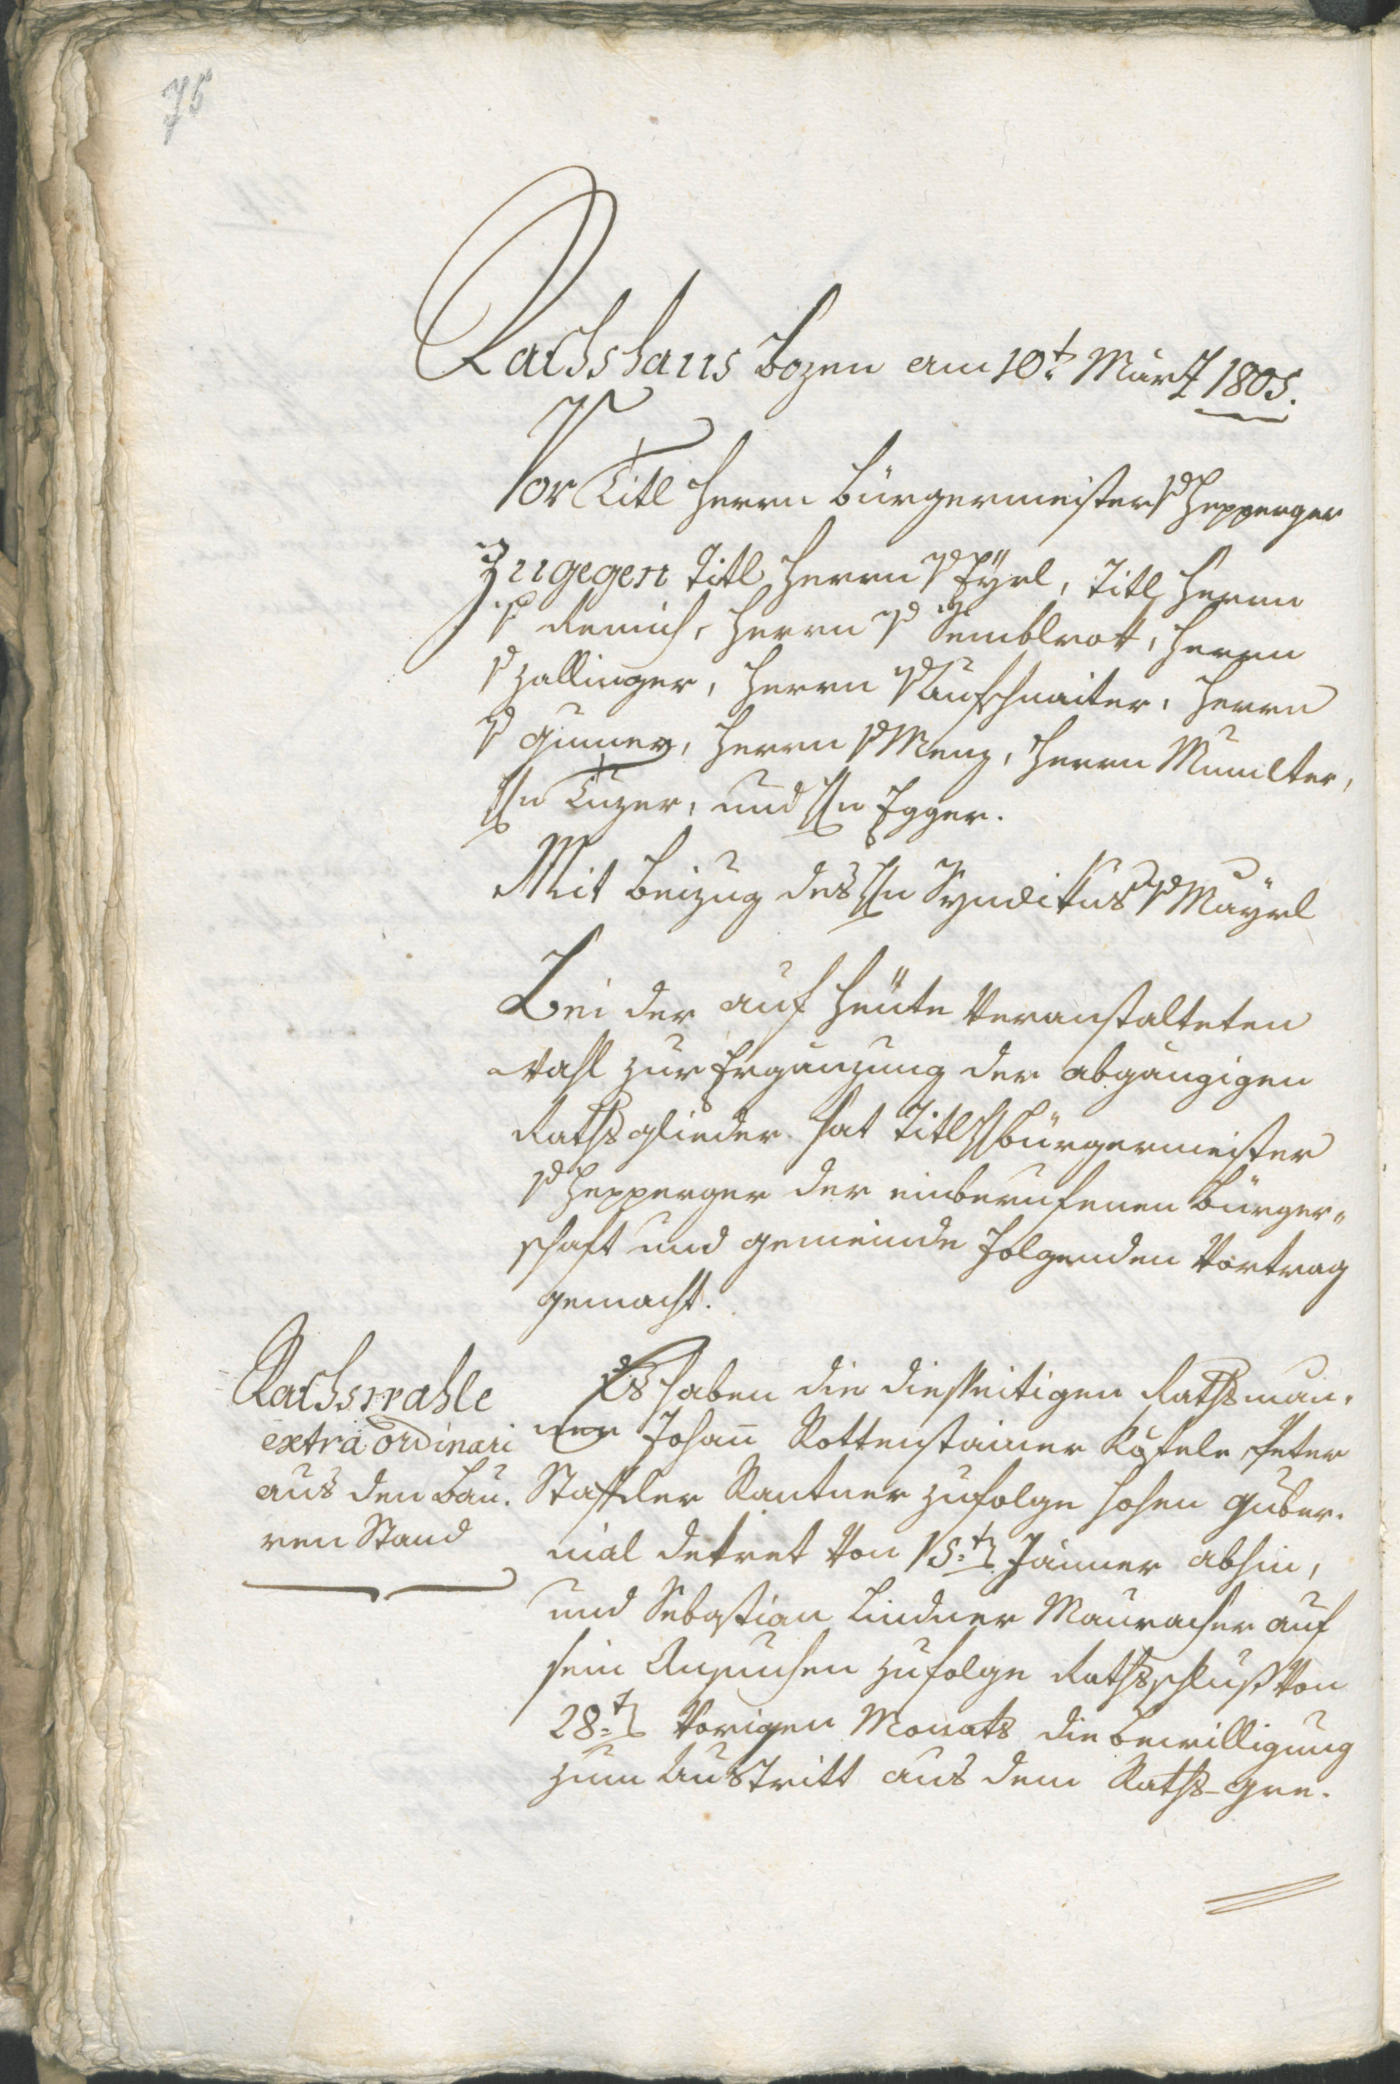 75
Rathshaus Bozen am 10t. März 1805.
Vor Titl Herrn Bürgermeister v Hepperger
Zugegen Titl Herrn v Eÿrl, Titl Herrn
v Remich, Herrn v Semblrok, Herrn
v Zallinger, Herrn v Aufschnaiter, Herrn
v Gumer, Herrn v Menz, Herrn Mumelter,
Hn Tuzer, und Hn Egger.
Mit Beizug des Hn Syndikus v Mayrl
Bei der auf heute veranstalteten
Wahl zur Ergänzung der abgängigen
Rathsglieder hat Titl H Bürgermeister
v Hepperger der einberufenen Bürger„
schaft und Gemeinde folgenden Vortrag
gemacht.
Rathswahle
extra ordinari
aus den Bau.
ren Stand
Es haben die diesseitigen Rathsmän.
ner Johann Rottenstainer Kofele Peter
Staffler Rantner zufolge hohen Guber.
nial Dekret von 15ten Jänner abhin,
und Sebastian Lindner Mauracher auf
sein Ansuchen zufolge Rathsschluß von
28ten vorigen Monats die Bewilligung
zum Austritt aus dem Raths-Gre.